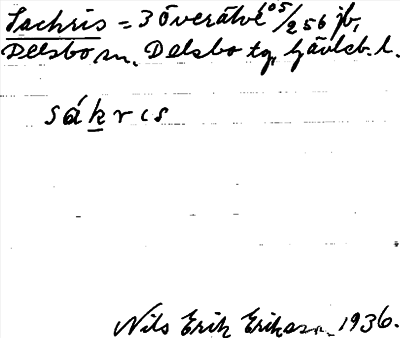 Sachris = 3 Överälve 105/256 jb,
Delsbo sn, Delsbo tg, Gävleb. l.
sákris
Nils Erik Erikson, 1936.